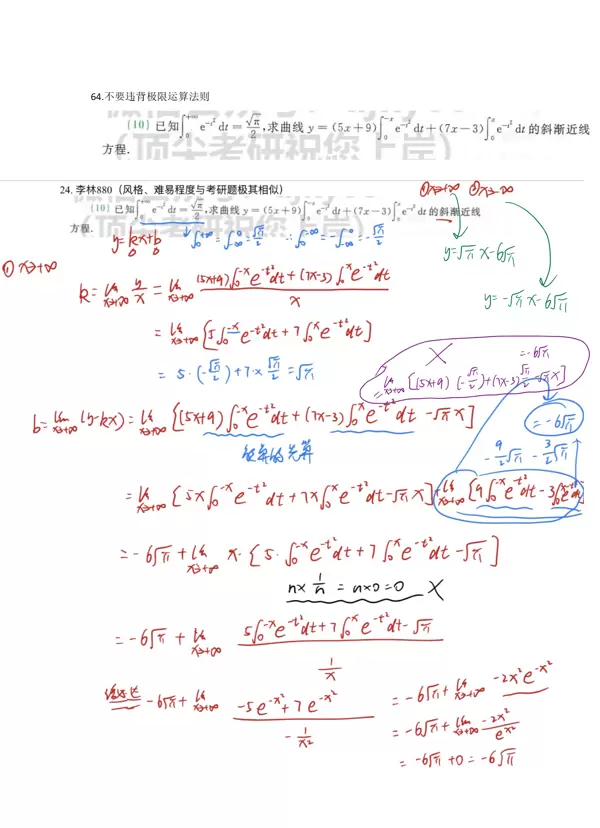 64.不要违背极限运算法则
(10) 已知∫₀^{+∞} e^{-t²} dt = √π/2, 求曲线 y = (5x+9)∫₀^{-x} e^{-t²} dt + (7x-3)∫₀^{x} e^{-t²} dt 的斜渐近线
方程.
24. 李林880（风格、难易程度与考研题极其相似） ①x→+∞ ②x→-∞
(10) 已知∫₀^{+∞} e^{-t²} dt = √π/2, 求曲线 y = (5x+9)∫₀^{-x} e^{-t²} dt + (7x-3)∫₀^{x} e^{-t²} dt 的斜渐近线
方程.
y=kx+b ∫₀^{+∞} = ∫_{-∞}^0 = √π/2 ∴ ∫₀^{-∞} = -∫_{-∞}^0 = -√π/2
y=√π x-6√π
① x→+∞
y=-√π x-6√π
k = lim_{x→+∞} y/x = lim_{x→+∞} ((5x+9)∫₀^{-x} e^{-t²}dt + (7x-3)∫₀^{x} e^{-t²}dt)/x
= lim_{x→+∞} [5∫₀^{-x} e^{-t²}dt + 7∫₀^{x} e^{-t²}dt]
X =-6√π
= 5·(-√π/2) + 7×√π/2 = √π
= lim_{x→+∞} [(5x+9)(-√π/2)+(7x-3)√π/2-√π x]
b = lim_{x→+∞} (y-kx) = lim_{x→+∞} [(5x+9)∫₀^{-x} e^{-t²}dt + (7x-3)∫₀^{x} e^{-t²}dt - √π x]
=-6√π
-9/2√π - 3/2√π
能算的先算
= lim_{x→+∞} [5x∫₀^{-x} e^{-t²}dt + 7x∫₀^{x} e^{-t²}dt - √π x] + lim_{x→+∞} [9∫₀^{-x} e^{-t²}dt - 3∫₀^{x} e^{-t²}dt
= -6√π + lim_{x→+∞} x·[5·∫₀^{-x} e^{-t²}dt + 7∫₀^{x} e^{-t²}dt - √π]
n× 1/n = n×0=0 X
= -6√π + lim_{x→+∞} (5∫₀^{-x} e^{-t²}dt + 7∫₀^{x} e^{-t²}dt - √π)/(1/x)
洛必达 -6√π + lim_{x→+∞} (-5e^{-x²}+7e^{-x²})/(-1/x²) = -6√π + lim_{x→+∞} -2x²e^{-x²}
= -6√π + lim_{x→+∞} -2x²/e^{x²}
= -6√π+0 = -6√π